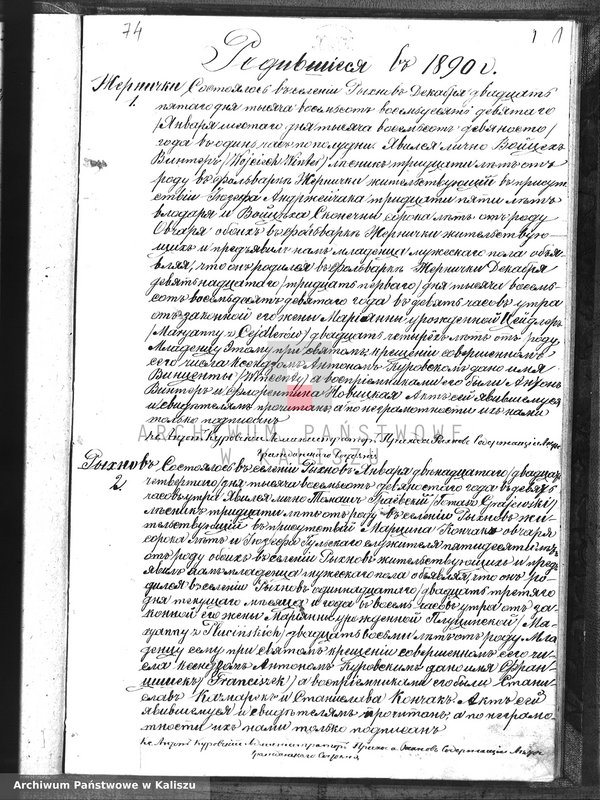 74
1 1
Родившіеся въ 1890 г.
Жернички Состоялось въ селеніи Рыхновъ Декабря двадцать
1. пятаго дня тысяча восемьсотъ восемьдесятъ девятаго
/Января шестаго дня тысяча восемьсотъ девяностаго/
года въ одинъ часъ по полудни. Явился лично Войцехъ
Винтеръ /Wojciech Winter/ лѣсникъ тридцати лѣтъ отъ
роду въ фольваркѣ Жернички жительствующій въ присут
ствіи Іозефа Андржейчака тридцати пяти лѣтъ
влодаря и Войцеха Сконечны сорока лѣтъ отъ роду
овчаря обоихъ въ фольваркѣ Жернички жительствую
щихъ и предъявилъ намъ младенца мужескаго пола объя
вляя, что онъ родился въ фольваркѣ Жернички Декабря
девятнадцатаго /тридцать перваго/ дня тысяча восемь
сотъ восемьдесятъ девятаго года въ девять часовъ утра
отъ законной его жены Маріанны урожденной Цейдлеръ
Maryanny z Cejdlerów/ двадцать четырехъ лѣтъ отъ роду,
Младенцу этому при святомъ крещеніи совершенномъ
сего числа Ксендзомъ Антономъ Куровскимъ дано имя
Винценты /Wincenty/ а воспріемниками его были Антонъ
Винтеръ и Флорентина Новицкая Актъ сей явившемуся
и свидѣтелямъ прочитанъ, а по неграмотности ихъ нами
только подписанъ
Кс. Антонъ Куровскій Администраторъ Прихода Содержащій Акты
Гражданскаго Состоянія
Рыхновъ Состоялось въ селеніи Рыхновъ Января двѣнадцатаго /двадцать
2. четвертаго/ дня тысяча восемьсотъ девяностаго года въ девять
часовъ утра Явился лично Томашъ Граевскій /Tomasz Grajewski/
лѣсникъ тридцати лѣтъ отъ роду въ селеніи Рыхновъ жи
тельствующій въ присутствіи Марцина Кончакъ овчаря
сорока лѣтъ и Іозефа Гульскаго служителя пятидесяти лѣтъ
отъ роду обоихъ въ селеніи Рыхновъ жительствующихъ и предъ
явилъ намъ младенца мужескаго пола объявляя, что онъ ро
дился въ селеніи Рыхновъ одиннадцатаго /двадцать третяго
дня текущаго мѣсяца и года въ восемь часовъ утра отъ за
конной его жены Маріанны урожденной Плуцинской /Ma
ryanny z Plucińskich/ двадцать восьми лѣтъ отъ роду Мла
денцу сему при святомъ крещеніи совершенномъ сего чи
сла ксендзомъ Антономъ Куровскимъ дано имя Фран
цишекъ /Franciszek/ а воспріемниками его были Стани
славъ Качмарекъ и Станислава Кончакъ Актъ сей
явившемуся и свидѣтелямъ прочитанъ, а по неграмо
тности ихъ нами только подписанъ
Кс. Антонъ Куровскій Администраторъ Прихода Содержащій Акты
Гражданскаго Состоянія
ARCHIWUM PAŃSTWOWE
W KALISZU
Archiwum Państwowe w Kaliszu